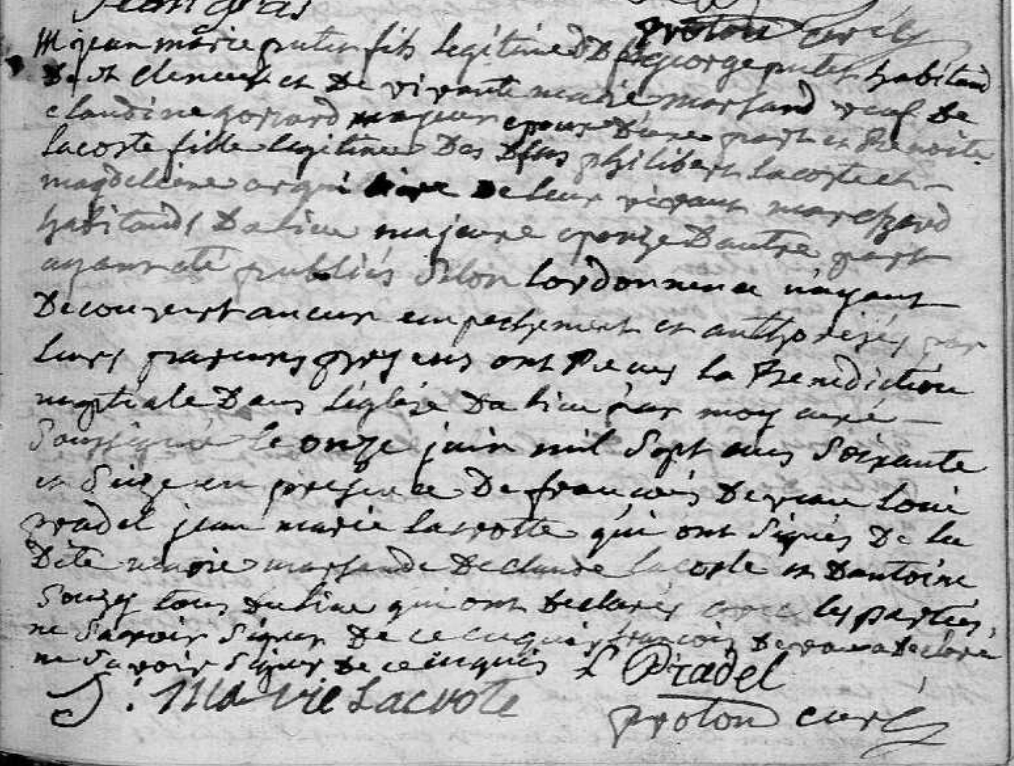 jean gras
proton curé
jean marie putin fils legitime D Dft george putin habitand
De st clement et De vivante marie marsand veuf De
claudine goriard majeur epoux D'une part et Benoite
Lacoste fille legitime Des Dfts philibert Lacoste et
magdeleine arqui De leur vivant marchand
habitands Du lieu majeure epouze Dautre part
ayant été publiés selon lordonnence n'ayant
Decouvert aucun empechement et authorisés par
leurs parens presens ont Receus la Benediction
nuptiale Dans l'églize Du lieu par moy curé
Soussigné le onze juin mil Sept cens Soixante
et Seize en presence De francois De veau Loui
pradel jean marie Lacrotte qui ont signés De la
Dite marie marsande De claude Lacoste et Dantoine
Souzy tous Du lieu qui ont Declarés avec les parties
ne Savoir Signer De ce enquis francois De veau a Declaré
ne Savoir Signer De ce enquis L Pradel
J. Marie Lacrote
proton curé